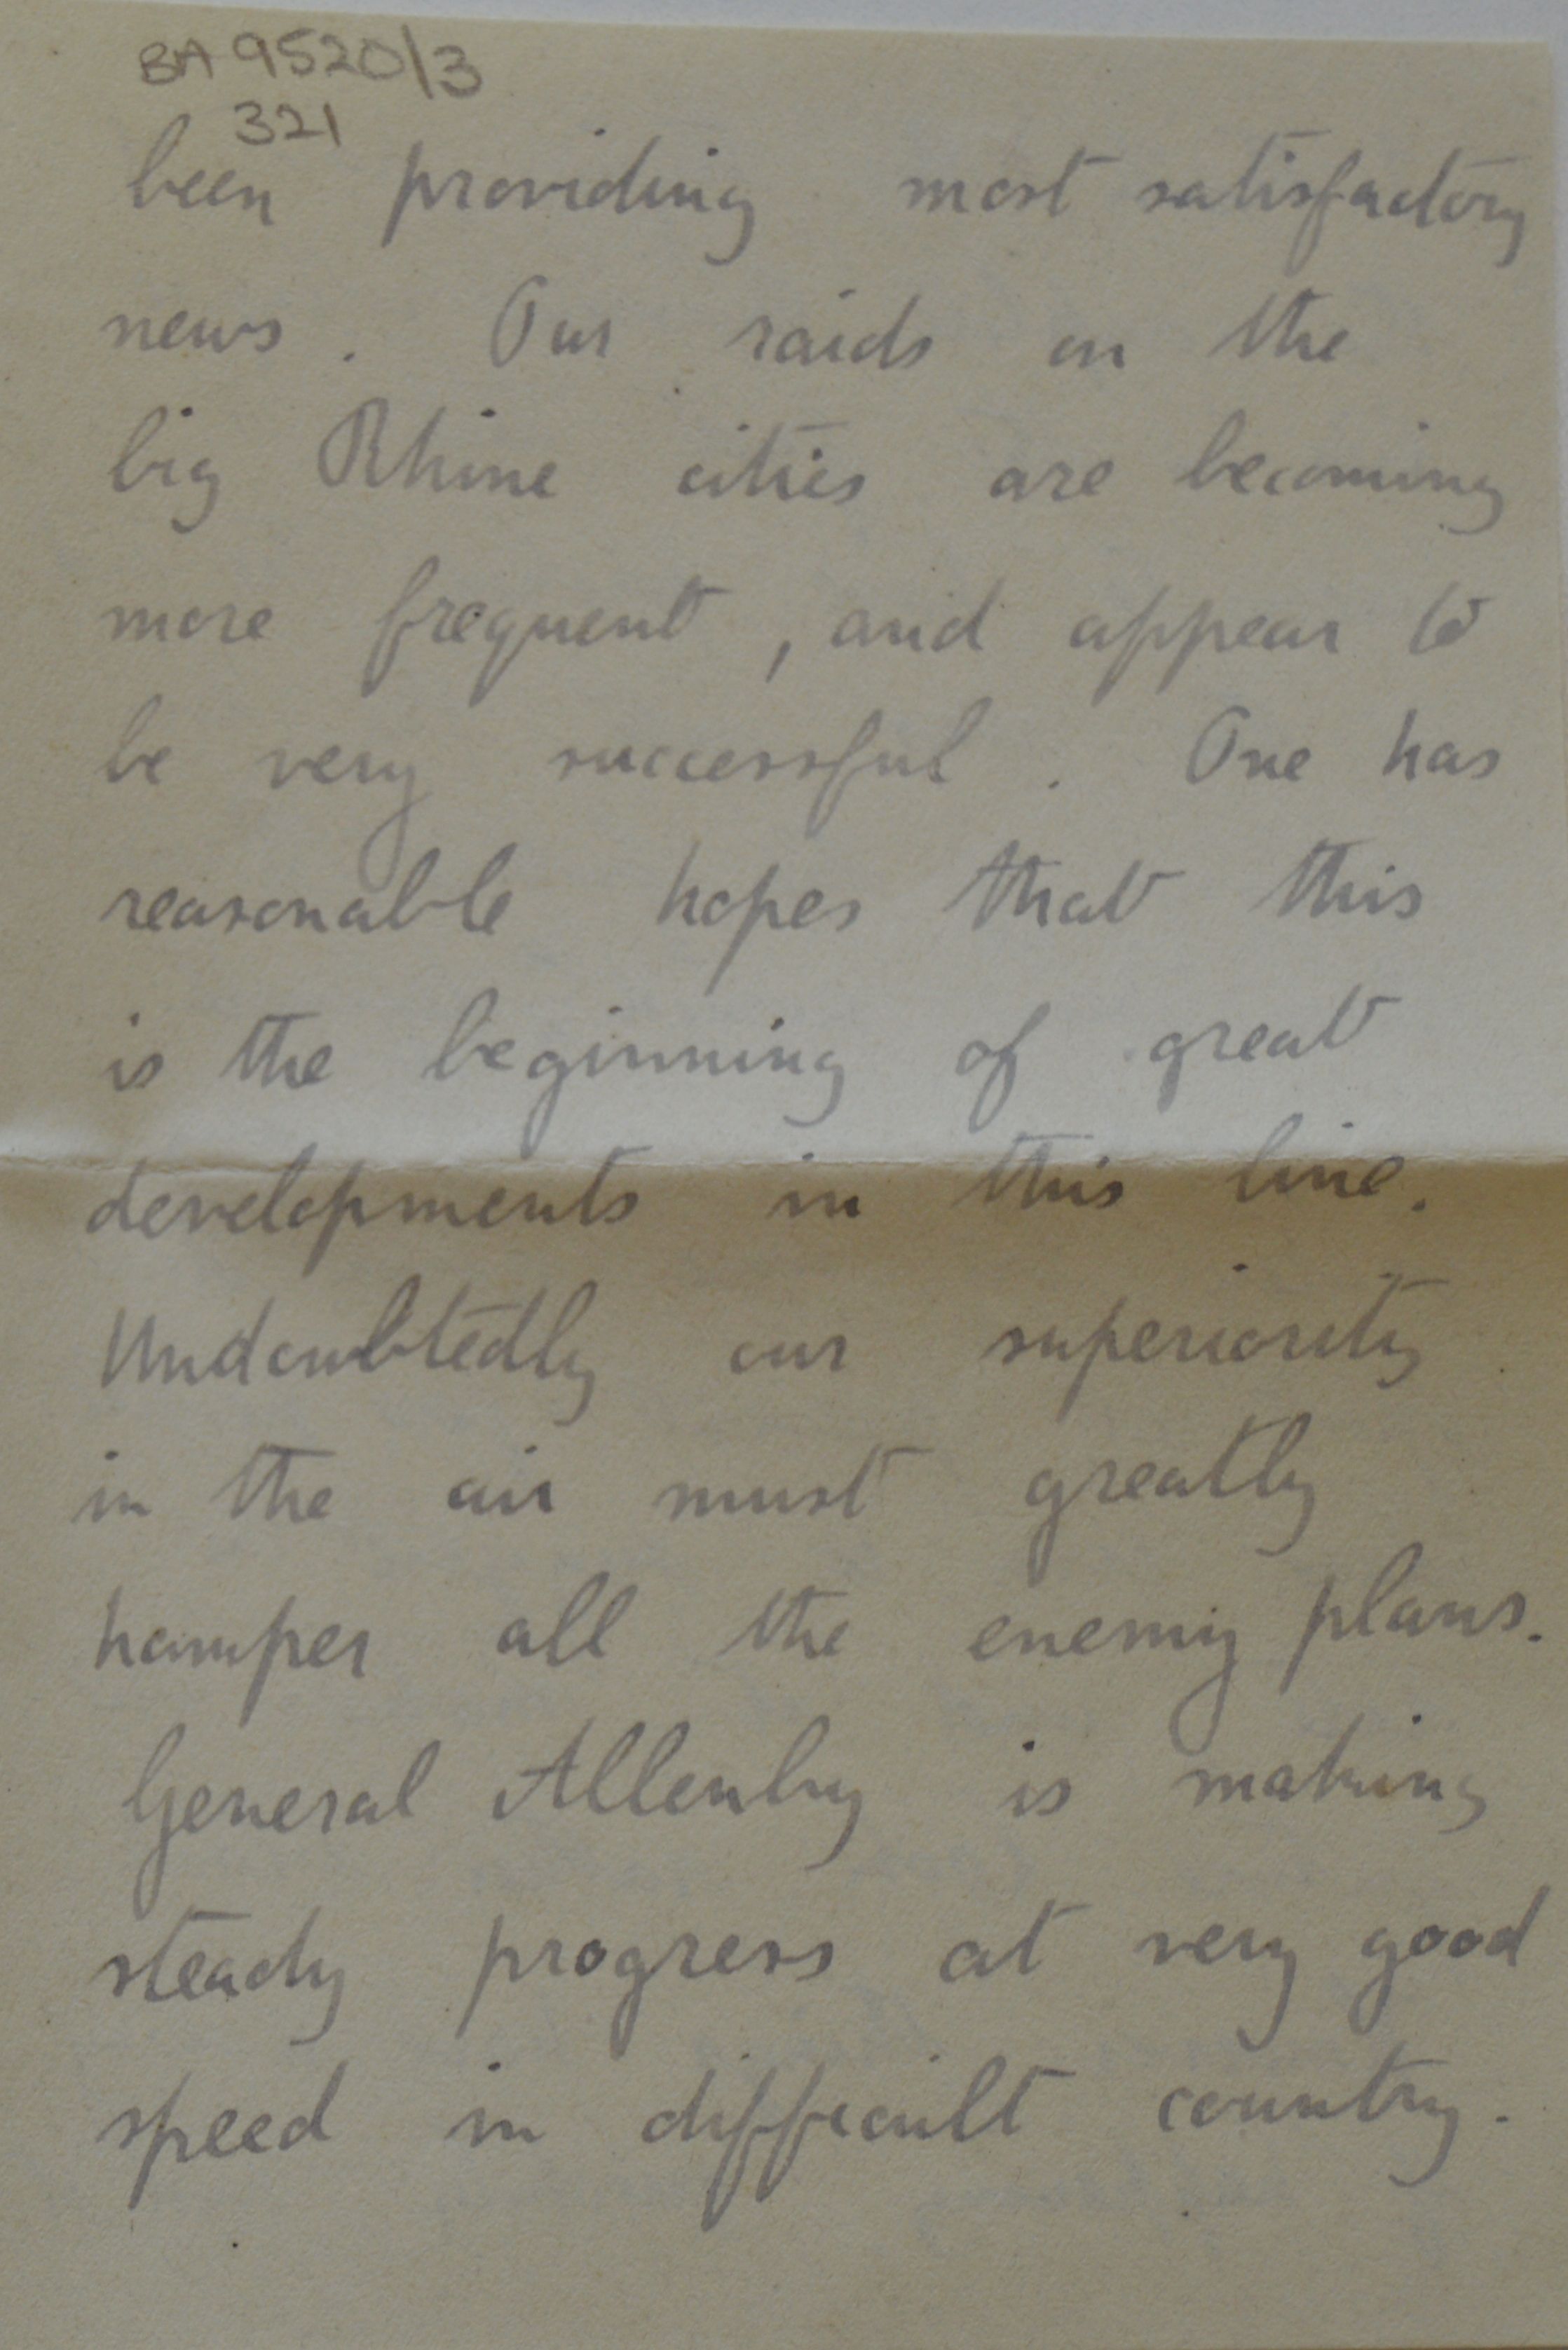 BA 9520/3
321
been providing most satisfactory
news. Our raids on the
big Rhine cities are becoming
more frequent, and appear to
be very successful. One has
reasonable hopes that this
is the beginning of great
developments in this line.
Undoubtedly our superiority
in the air must greatly
hamper all the enemy plans.
General Allenby is making
steady progress at very good
speed in difficult country.